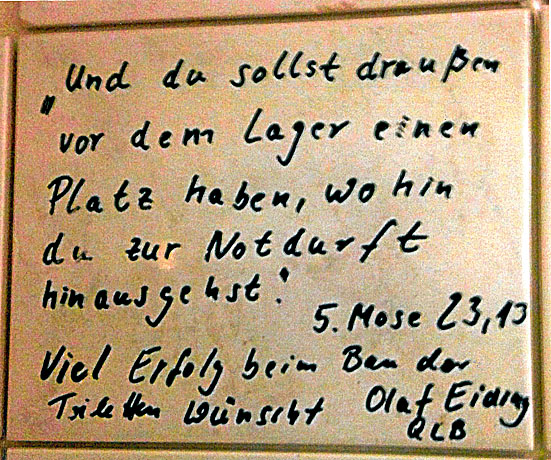 „Und du sollst draußen
vor dem Lager einen
Platz haben, wohin
du zur Notdurft
hinausgehst."
5. Mose 23,13
Viel Erfolg beim Bau der
Toiletten wünscht Olaf
QLB